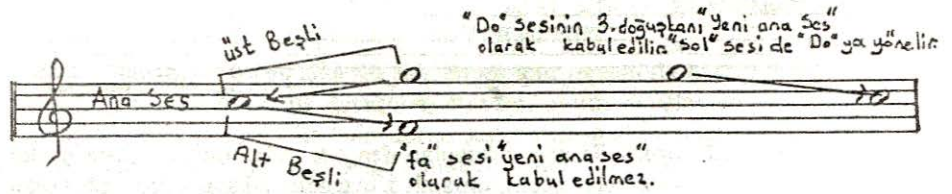 "Do" sesinin 3. doğuştanı "Yeni ana Ses"
olarak kabul edilir. "Sol" sesi de "Do" ya yönelir.
üst Beşli
Ana Ses
Alt Beşli
"fa" sesi "yeni ana ses"
olarak kabul edilmez.